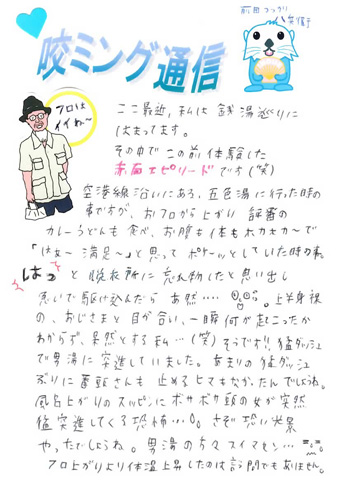 前田コックリ
咬ミング通信
フロは
イイね〜
ここ最近、私は銭湯巡りに
はまってます。
その中でこの前体験した
赤面エピソードです(笑)
空港線沿いにある、五色湯に行った時の
事ですが、お風呂から上がり 評番の
カレーうどんも食べ、お腹も体もホカホカ〜で
「はぁ〜 満足〜♪」と思って ポケーッとしていた時の事。
はっ と 脱衣所に 忘れ物したと思い出し
急いで駆け込んだら あ然…… 上半身裸
の、おじさまと 目が合い、一瞬 何が起こったか
わからず、呆然とする私…(笑) そうです!! 猛ダッシュ
で男湯に突進していました。あまりの猛ダッシュ
ぶりに番頭さんも 止めるヒマもなかったんでしょうね。
風呂上がりのスッピンに ボサボサ頭の女が突然
猛突進してくる恐怖…。さぞ恐い光景
やったでしょうね。男湯の方々スイマセン…
フロ上がりより体温上昇したのは言う間でもありません。